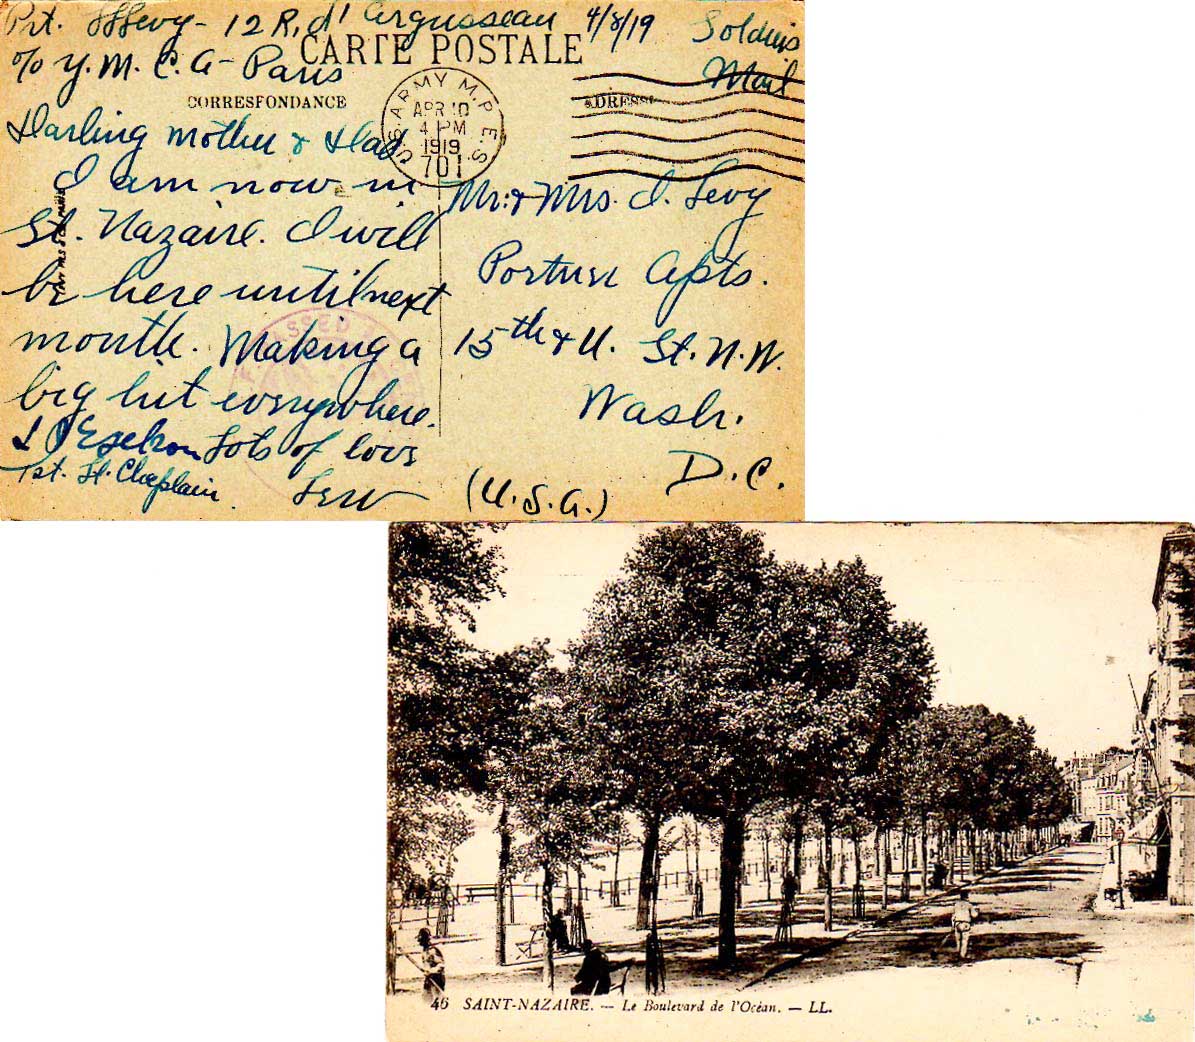 Pvt. Levy - 12 R. d'Argusseau 4/8/19
Soldiers
Mail
c/o Y.M.C.A - Paris
CARTE POSTALE
CORRESPONDANCE
ADRESSE
U.S. ARMY M.P.E.S.
APR 10
4 PM
1919
701
Darling Mother & Dad
I am now in
St. Nazaire. I will
be here until next
month. Making a
big hit everywhere.
Lots of love
Lew
1st. Lt. Chaplain
PASSED
Mr. & Mrs. I. Levy
Portner Apts.
15th & U. St. N.W.
Wash.
D.C.
(U.S.A.)
46 SAINT-NAZAIRE. — Le Boulevard de l'Océan. — LL.